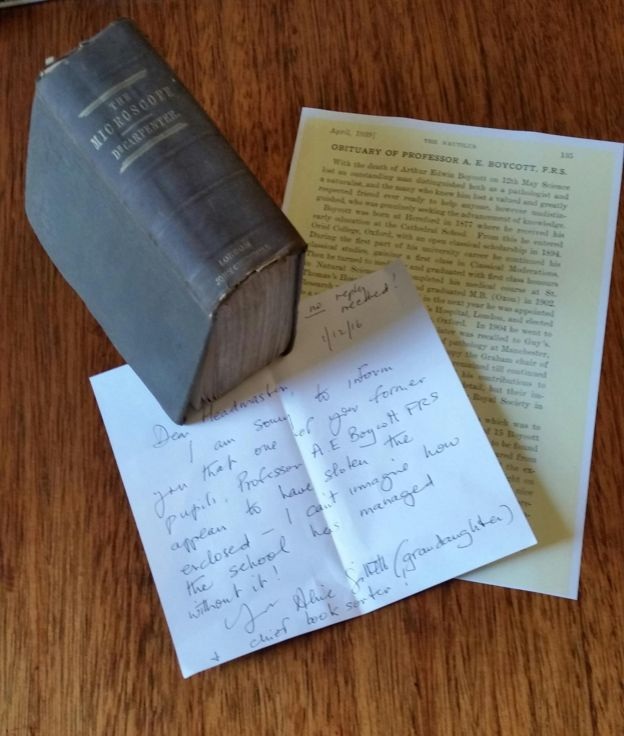 THE
MICROSCOPE
DR CARPENTER.
LONDON
April, 1939]
THE NAUTILUS
135
OBITUARY OF PROFESSOR A. E. BOYCOTT, F.R.S.
With the death of Arthur Edwin Boycott on 12th May Science
lost an outstanding man distinguished both as a pathologist and
a naturalist, and the many who knew him lost a valued and greatly
respected friend ever ready to help anyone, however undistin-
guished, who was genuinely seeking the advancement of knowledge.
Boycott was born at Hereford in 1877 where he received his
early education at the Cathedral School. From this he entered
Oriel College, Oxford, with an open classical scholarship in 1894.
During the first part of his university career he continued his
classical studies, gaining a first class in Classical Moderations.
Then he turned to
Natural Scien and graduated with first class honours
Thomas's Hos completed his medical course at St.
research graduated M.B. (Oxon) in 1902.
in the next year he was appointed
Hospital, London, and elected
Oxford. In 1904 he went to
later was recalled to Guy's
of pathology at Manchester,
the Graham chair of
remained till continued
his contributions to
detail, but their im-
Royal Society in
which was to
15 Boycott
to be found
from
the ex-
on
nice
no reply
needed!
1/12/16
Dear Headmaster
I am sorry to inform
you that one of your former
pupils, Professor A.E Boycott FRS
appears to have stolen the
enclosed – I can't imagine how
the school has managed
without it!
Alice (grandaughter)
+ chief book sorter!